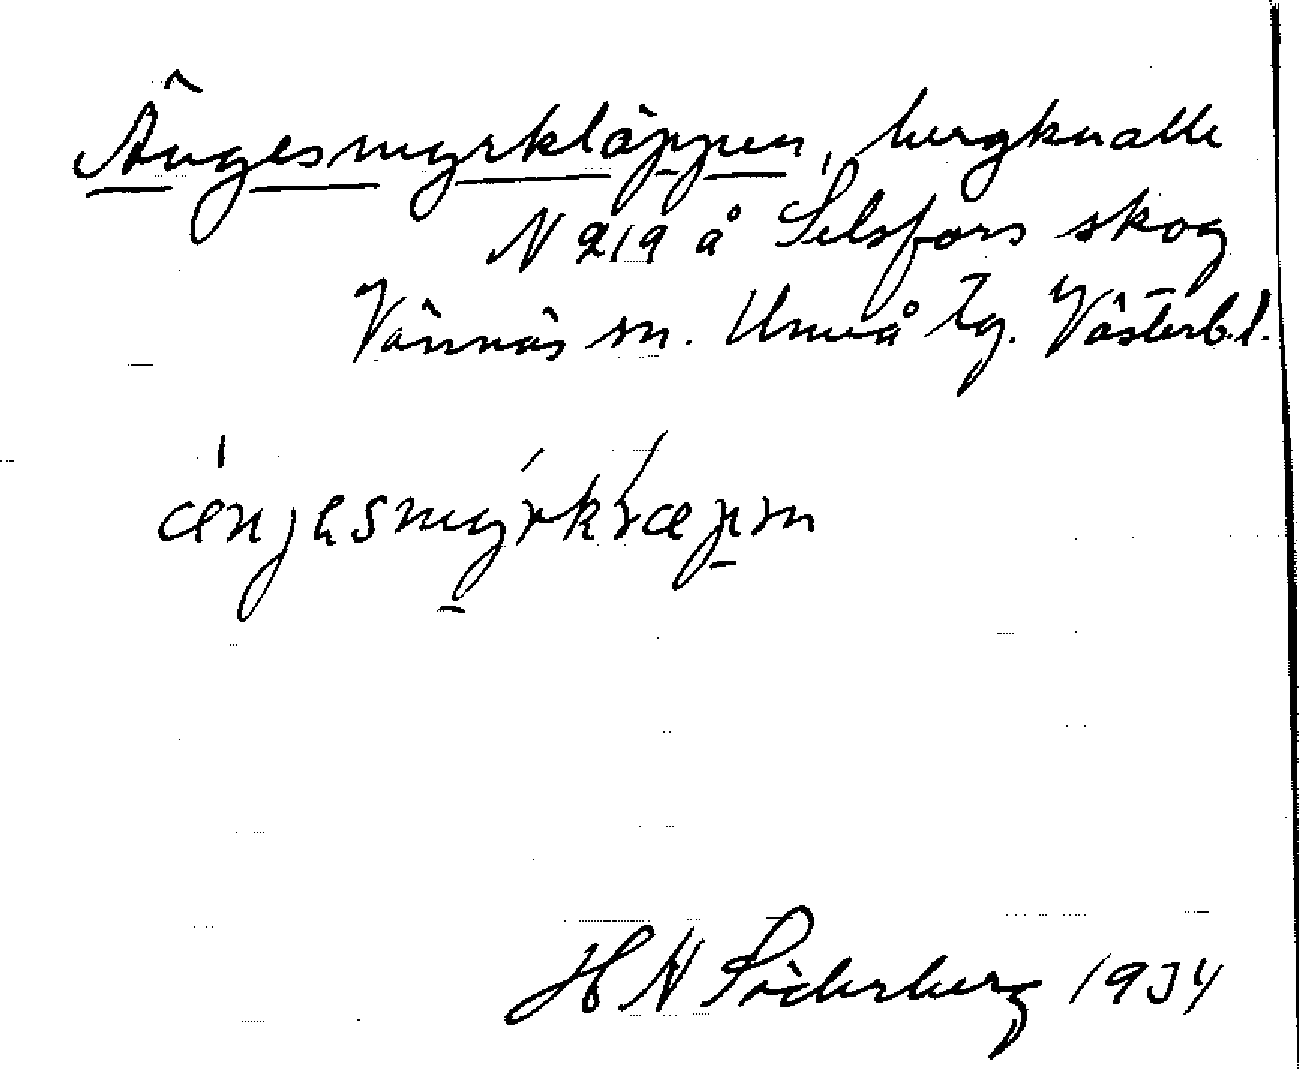 Ängesmyrkläppen, bergknalle
N 219 å Selsfors skog
Vännäs sn. Umeå tg. Västerb.l.
ænjesmyrkræpm
H N Söderberg 1934